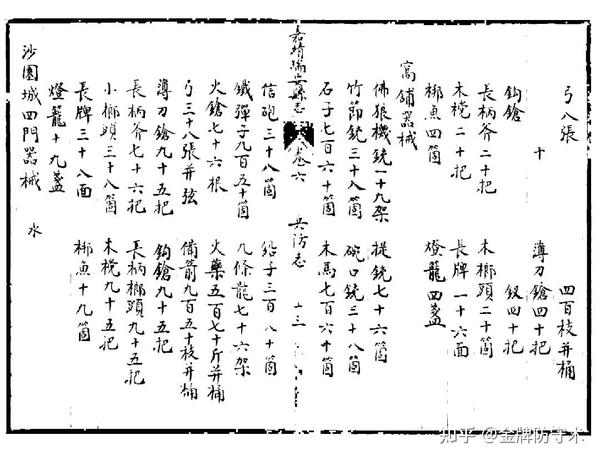 弓八張 四百枝并桶
十 薄刀鎗四十把
鈎鎗 釵四十把
長柄斧二十把 木榔頭二十箇
木棁二十把 長牌一十六面
梆魚四箇 燈籠四盞
窩鋪器械
佛狼機銃一十九架 提銃七十六箇
竹節銃三十八箇 碗口銃三十八箇
石子七百六十箇 木馬七百六十箇
嘉靖瑞安縣志 卷六 兵防志 十三
信砲三十八箇 鉛子三百八十箇
鐵彈子九百五十箇 九條龍七十六架
火鎗七十六根 火藥五百七十斤并桶
弓三十八張并弦 備箭九百五十枝并桶
薄刀鎗九十五把 鈎鎗九十五把
長柄斧七十六把 長柄榔頭九十五把
小榔頭三十八箇 木棁九十五把
長牌三十八面 梆魚十九箇
燈籠十九盞
沙園城四門器械 水
知乎 @金牌防守木